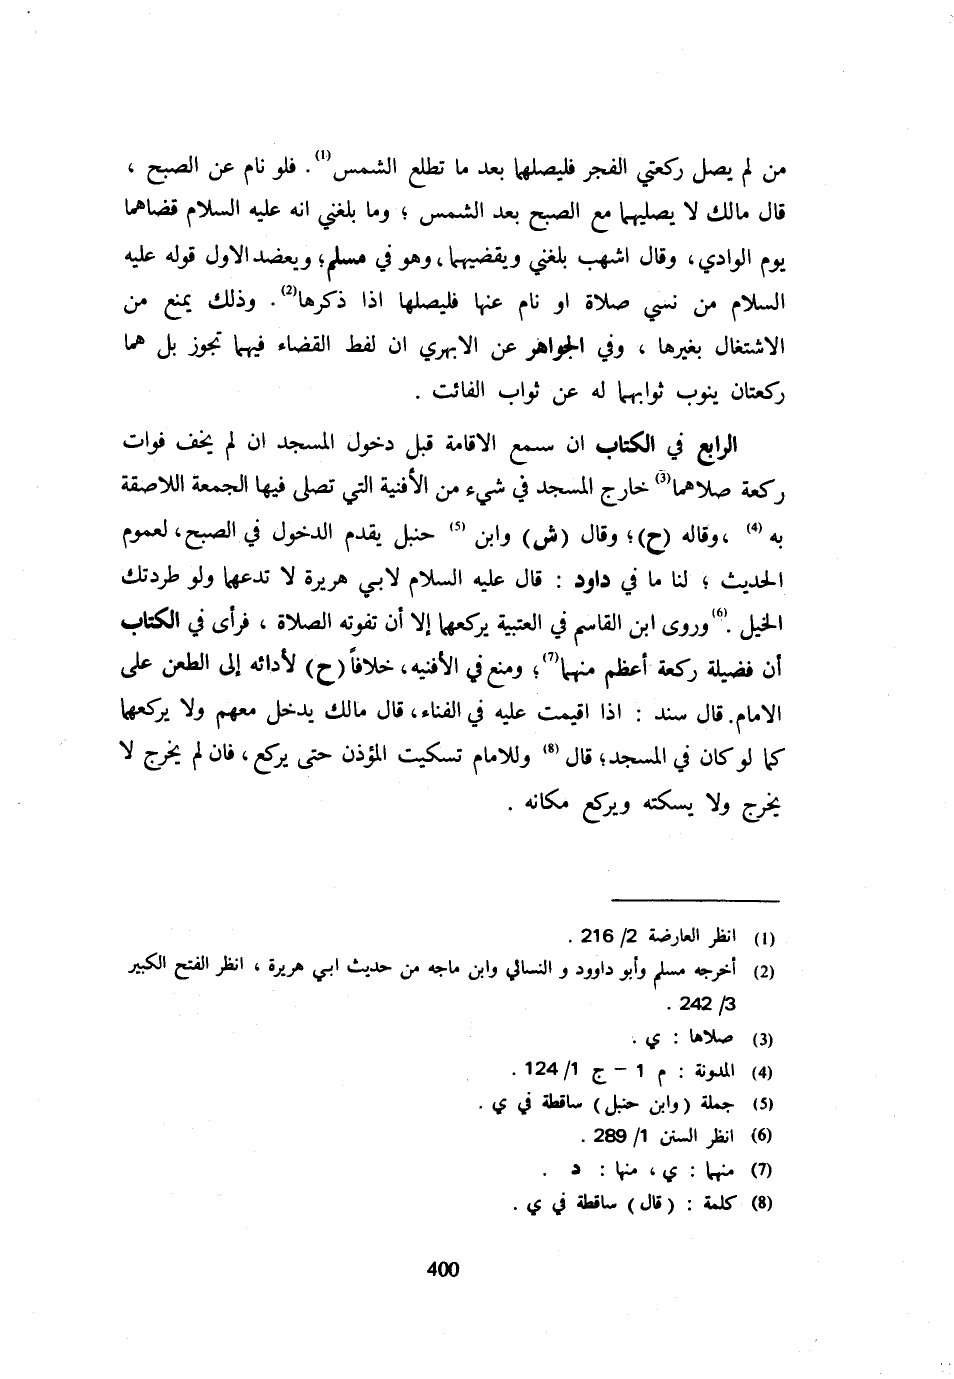 من لم يصل ركعتي الفجر فليصلهما بعد ما تطلع الشمس(1). فلو نام عن الصبح ،
قال مالك لا يصليهما مع الصبح بعد الشمس ؛ وما بلغني انه عليه السلام قضاهما
يوم الوادي، وقال اشهب بلغني ويقضيهما، وهو في مسلم؛ ويعضد الاول قوله عليه
السلام من نسي صلاة او نام عنها فليصلها اذا ذكرها(2). وذلك يمنع من
الاشتغال بغيرها ، وفي الجواهر عن الابهري ان لفظ القضاء فيهما تجوز بل هما
ركعتان ينوب ثوابهما له عن ثواب الفائت .
الرابع في الكتاب ان سمع الاقامة قبل دخول المسجد ان لم يخف فوات
ركعة صلاهما(3) خارج المسجد في شيء من الأفنية التي تصلى فيها الجمعة اللاصقة
به (4) ، وقاله (ح)؛ وقال (ش) وابن (5) حنبل يقدم الدخول في الصبح، لعموم
الحديث ؛ لنا ما في داود : قال عليه السلام لابي هريرة لا تدعهما ولو طردتك
الخيل .(6) وروى ابن القاسم في العتبية يركعهما إلا أن تفوته الصلاة ، فرأى في الكتاب
أن فضيلة ركعة أعظم منهما(7)؛ ومنع في الأفنيه، خلافاً (ح) لأدائه إلى الطعن على
الامام. قال سند : اذا اقيمت عليه في الفناء، قال مالك يدخل معهم ولا يركعهما
كما لو كان في المسجد؛ قال (8) وللامام تسكيت المؤذن حتى يركع، فان لم يخرج لا
يخرج ولا يسكته ويركع مكانه .
(1) انظر العارضة 2/ 216 .
(2) أخرجه مسلم وأبو داوود و النسائي وابن ماجه من حديث ابي هريرة ، انظر الفتح الكبير
3/ 242 .
(3) صلاها : ي .
(4) المدونة : م 1 – ج 1/ 124 .
(5) جملة (وابن حنبل) ساقطة في ي .
(6) انظر السنن 1/ 289 .
(7) منهما : ي ، منها : د .
(8) كلمة : (قال) ساقطة في ي .
400